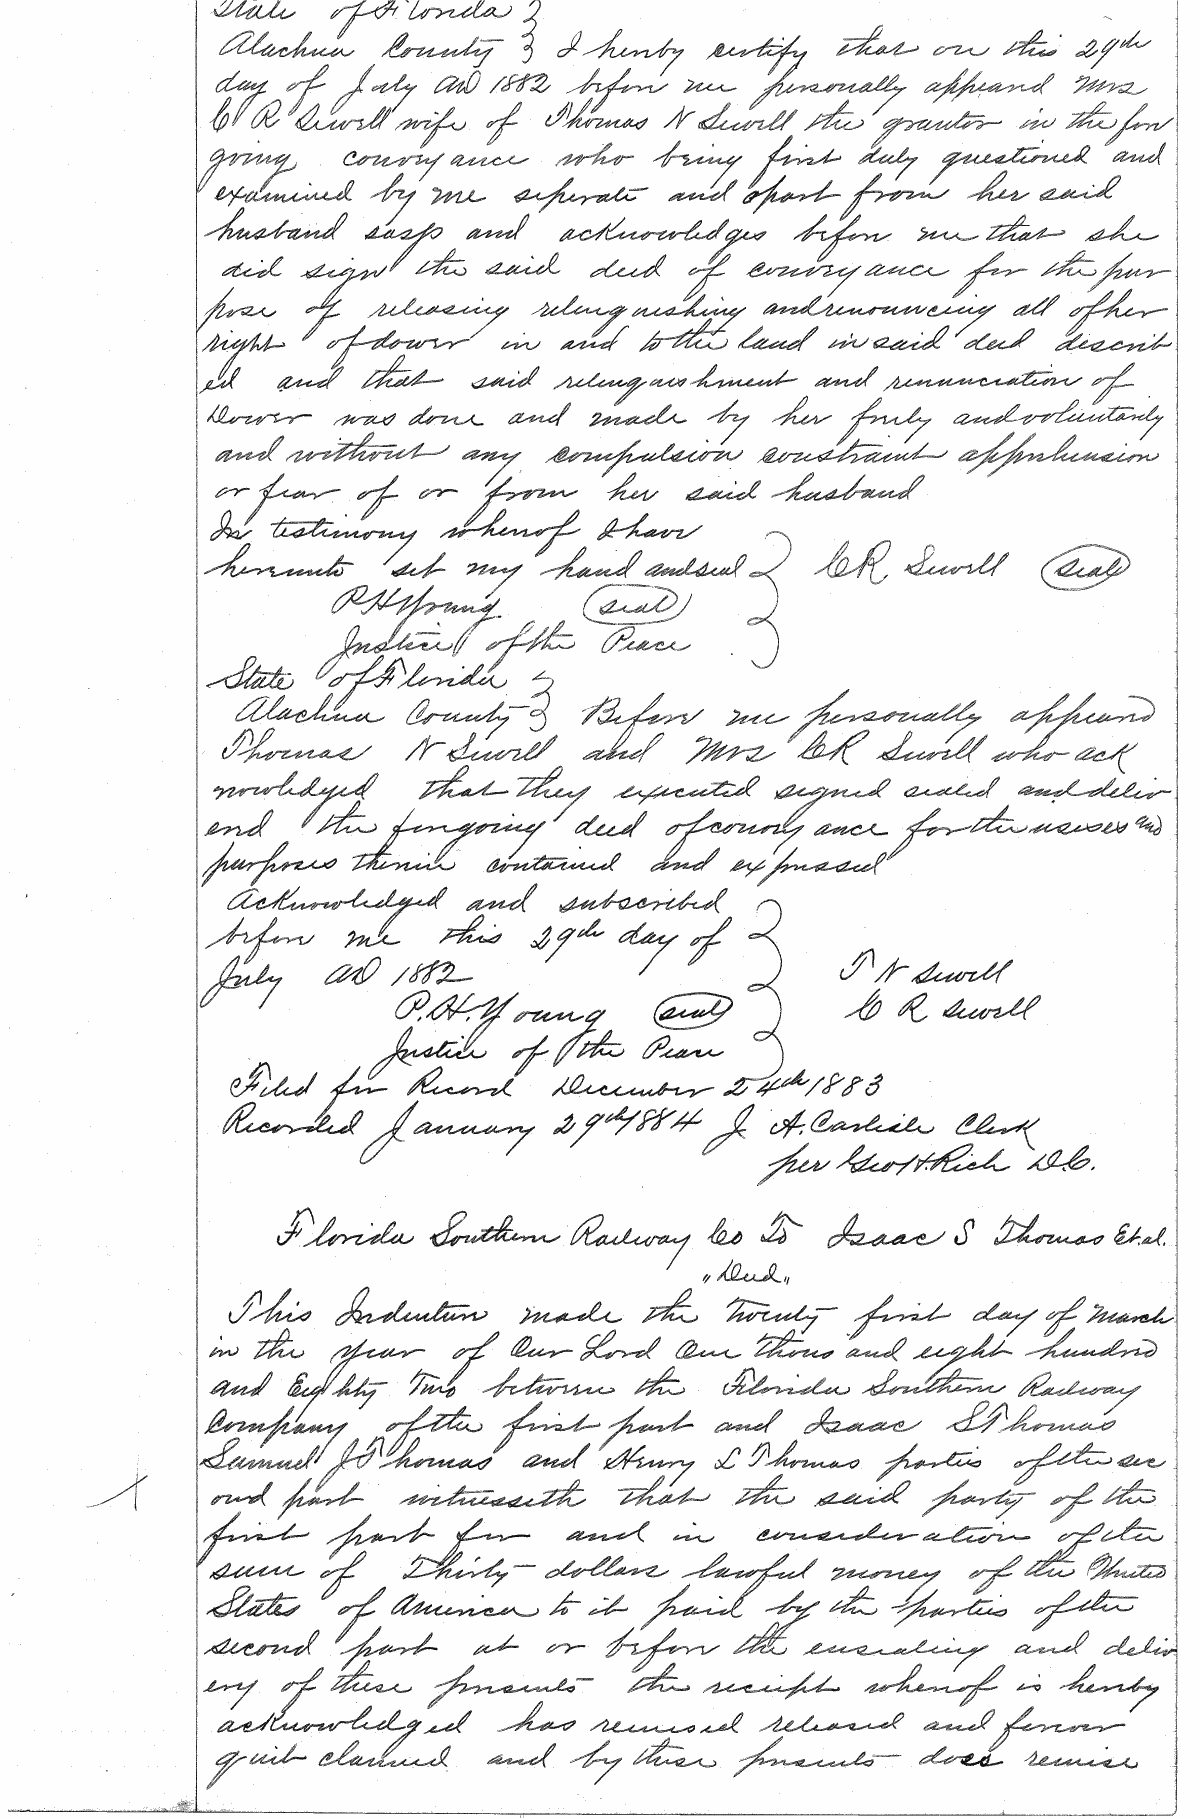 State of Florida }
Alachua County } I hereby certify that on this 29th
day of July AD 1882 before me personally appeared Mrs
C R Sewell wife of Thomas N Sewell the grantor in the fore
going conveyance who being first duly questioned and
examined by me seperate and apart from her said
husband says and acknowledges before me that she
did sign the said deed of conveyance for the pur
pose of releasing relinquishing and renouncing all of her
right of dower in and to the land in said deed describ
ed and that said relinquishment and renunciation of
Dower was done and made by her freely and voluntarily
and without any compulsion constraint apprehension
or fear of or from her said husband
In testimony whereof I have
hereunto set my hand and seal } C R Sewell (seal)
P H Young (seal)
Justice of the Peace
State of Florida }
Alachua County } Before me personally appeared
Thomas N Sewell and Mrs C R Sewell who ack
nowledged that they executed signed sealed and deliv
ered the foregoing deed of conveyance for the useses and
purposes therein contained and expressed
Acknowledged and subscribed
before me this 29th day of
July AD 1882 T N Sewell
P. H. Young (seal) C R Sewell
Justice of the Peace
Filed for Record December 24th 1883
Recorded January 29th 1884 J A. Carlisle Clerk
per Geo H. Rich D.C.
Florida Southern Railway Co To Isaac S Thomas Et.al.
"Deed"
This Indenture made the Twenty first day of March
in the year of Our Lord One thousand eight hundred
and Eighty Two between the Florida Southern Railway
Company of the first part and Isaac S Thomas
Samuel J Thomas and Henry L Thomas parties of the sec
ond part witnesseth that the said party of the
first part for and in consideration of the
sum of Thirty dollars lawful money of the United
States of America to it paid by the parties of the
second part at or before the ensealing and deliv
ery of these presents the receipt whereof is hereby
acknowledged has remised released and forever
quit claimed and by these presents does remise